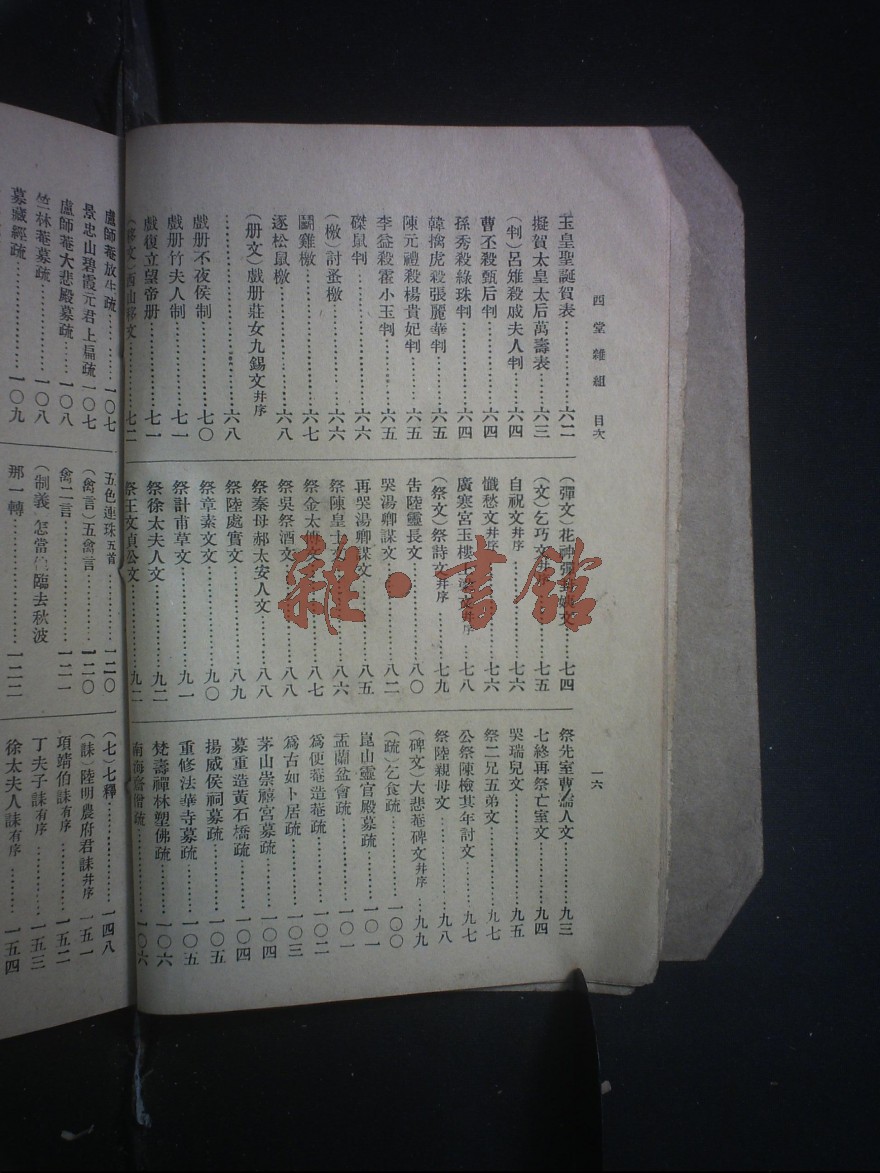 西堂雜組 目次
一六
玉皇聖誕賀表…………六二
擬賀太皇太后萬壽表…六三
(判)呂雉殺戚夫人判……六四
曹丕殺甄后判…………六四
孫秀殺綠珠判…………六四
韓擒虎殺張麗華判……六五
陳元禮殺楊貴妃判……六五
李益殺霍小玉判………六五
磔鼠判…………………六六
(檄)討蚤檄………………六六
鬭雞檄…………………六七
逐松鼠檄………………六八
(册文)戲册莊女九錫文幷序
…………………………六八
戲册不夜侯制…………七〇
戲册竹夫人制…………七一
戲復立望帝册…………七一
(移文)西山移文…………七二
(彈文)花神彈封姨文……七四
(文)乞巧文幷序…………七五
自祝文幷序……………七六
懺愁文幷序……………七六
廣寒宮玉樓上梁文幷序…七八
(祭文)祭詩文幷序………七九
告陸靈長文……………八〇
哭湯卿謀文……………八二
再哭湯卿謀文…………八五
祭陳皇士文……………八六
祭金太傅文……………八七
祭吳祭酒文……………八八
祭秦母郝太安人文……八八
祭陸處實文……………八九
祭章素文文……………九〇
祭計甫草文……………九一
祭徐太夫人文…………九二
祭王文貞公文…………九二
祭先室曹孺人文………九三
七終再祭亡室文………九四
哭瑞兒文………………九五
祭二兄五弟文…………九七
公祭陳檢其年討文……九七
祭陸親母文……………九八
(碑文)大悲菴碑文幷序…九九
(疏)乞食疏………………一〇〇
崑山靈官殿募疏………一〇一
盂蘭盆會疏……………一〇一
爲便菴造菴疏…………一〇二
爲古如卜居疏…………一〇三
茅山崇禧宮募疏………一〇四
募重造黃石橋疏………一〇四
揚威侯祠募疏…………一〇五
重修法華寺募疏………一〇五
梵壽禪林塑佛疏………一〇六
南海齋僧疏……………一〇六
盧師菴放生疏…………一〇七
景忠山碧霞元君上扁疏…一〇七
盧師菴大悲殿募疏……一〇八
竺林菴募疏……………一〇八
募藏經疏………………一〇九
五色連珠五首…………一二〇
(禽言)五禽言……………一二〇
禽二言…………………一二一
(制義)怎當 臨去秋波
那一轉…………………一二二
(七)七釋…………………一四八
(誄)陸明農府君誄幷序…一五一
項靖伯誄有序…………一五二
丁夫子誄有序…………一五三
徐太夫人誄有序………一五四
雜·書館